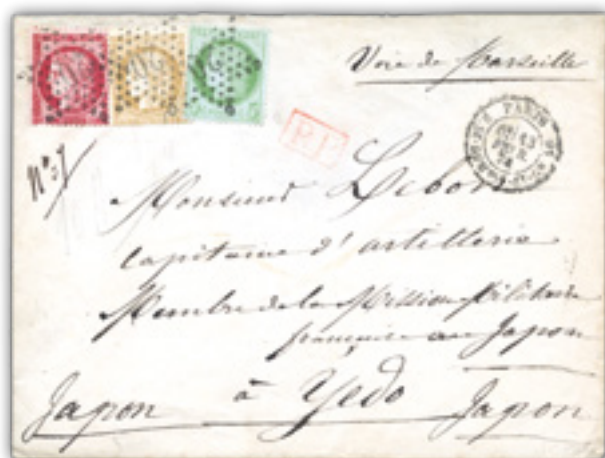 Voie de Marseille
P.P.
PARIS
N° 37
Monsieur Lebon
Capitaine d'artillerie
Membre de la Mission Militaire
française au Japon
à Yedo
Japon Japon